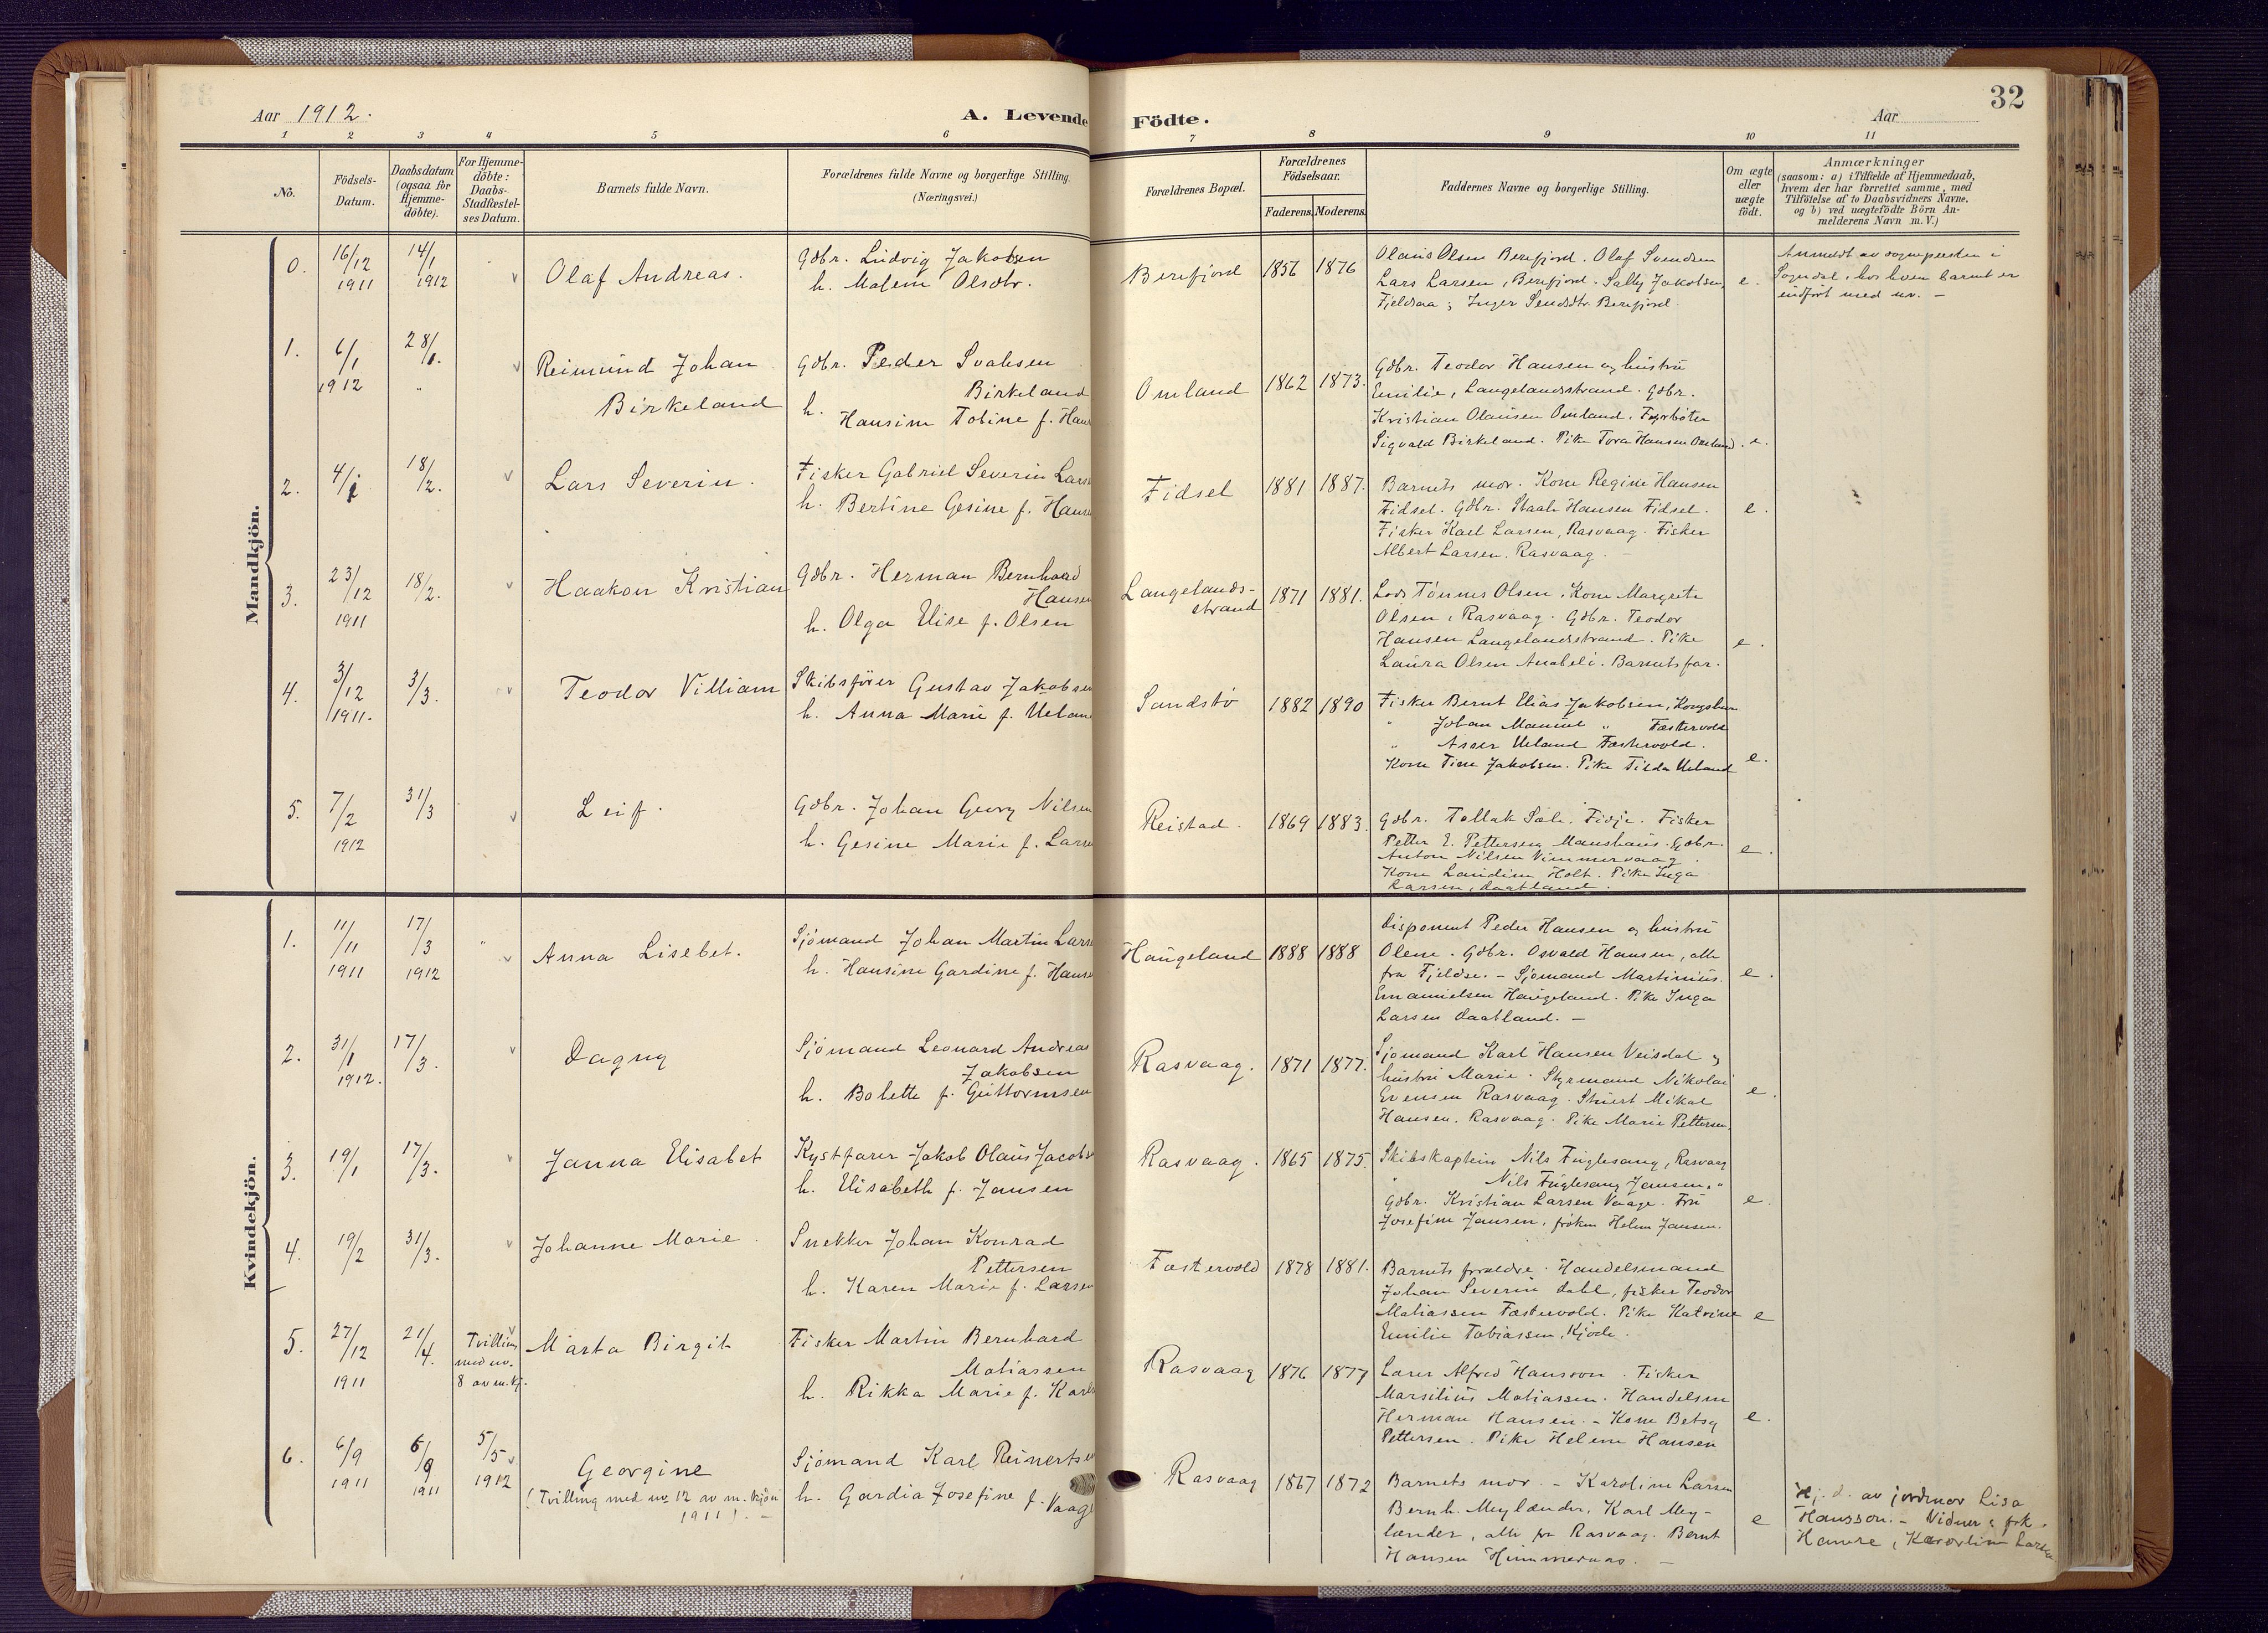 32
Aar 1912.
A. Levende Födte.
Aar
1 2 3 4 5 6 7 8 9 10 11
No.
Födsels-Datum.
Daabsdatum (ogsaa for Hjemmedöbte).
For Hjemmedöbte: Daabs-Stadfæstelses Datum.
Barnets fulde Navn.
Forældrenes fulde Navne og borgerlige Stilling. (Næringsvei.)
Forældrenes Bopæl.
Forældrenes Födselsaar.
Faderens. Moderens.
Faddernes Navne og borgerlige Stilling.
Om ægte eller uægte födt.
Anmærkninger
(saasom: a) i Tilfælde af Hjemmedaab,
hvem der har forrettet samme, med
Tilföielse af to Daabsvidners Navne.
og b) ved uægtefödte Börn An-
melderens Navn m. V.)
Mandkjön.
0. 16/12 1911 14/1 1912 v Olaf Andreas.
Gdbr. Ludvig Jakobsen
h. Malene Olsdtr.
Berefjord 1856 1876
Olaus Olsen Berefjord. Olaf Svendsen
Lars Larsen, Berefjord. Sally Jakobsen,
Fjeldsaa; Inger Sendsdtr. Berefjord.
e.
Anmeldt av sognepresten i
Sogndal, hos hvem barnet er
indført med nr. –
1. 6/1 1912 28/1. " v Reimund Johan
Birkeland
Gdbr. Peder Svalesen
Birkeland
h. Hansine Tobine f. Hans
Omland 1862 1873.
Gdbr. Teodor Hansen og hustru
Emilie, Langelandsstrand. Gdbr.
Kristian Olausen Omland. Fyrbøter
Sigvald Birkeland. Pike Tora Hansen Omland. e.
2. 4/1 18/2. v Lars Severin.
Fisker Gabriel Severin Lars
h. Bertine Gesine f. Hanse
Fidsel 1881 1887.
Barnets mor. Kone Regine Hansen
Fidsel. Gdbr. Staale Hansen Fidsel.
Fisker Karl Larsen, Rasvaag. Fisker
Albert Larsen. Rasvaag. –
e.
3. 23/12 1911 18/2. v Haakon Kristian
Gdbr. Herman Bernhard
Hansen
h. Olga Elise f. Olsen
Langelands-
strand 1871 1881.
Lods Tönnes Olsen. Kone Margrete
Olsen, Rasvaag. Gdbr. Teodor
Hansen Langelandsstrand. Pike
Laura Olsen Anabeli. Barnets far.
e.
4. 3/12 1911. 3/3. v Teodor Villiam
Skibsfører Gustav Jakobsen
h. Anna Marie f. Uelan
Sandstö 1882 1890
Fisker Bernt Elias Jakobsen,
" Johan Manne " Fæstervold
" Asser Ueland Fæstervold.
Kone Tine Jakobsen. Pike Tilda Ueland
e.
5. 7/2 1912 31/3 v Leif.
Gdbr. Johan Georg Nilsen
h. Gesine Marie f. Larse
Reistad. 1869 1883.
Gdbr. Tollak Sæli. Fidje. Fisker
Petter E. Pettersen, Manshaus. Gdbr.
Anton Nilsen Vimmervaag.
Kone Landine Holt. Pike Inga
Larsen, Daatland.
e.
Kvindekjön.
1. 11/11 1911 17/3 1912 " v Anna Lisebet.
Sjömand Johan Martin Lars
h. Hansine Gardine f. Hanse
Haugeland 1888 1888
Disponent Peder Hansen og hustru
Olene. Gdbr. Osvald Hansen, alle
fra Fjeldse. – Sjömand Martinius
Emanuelsen Haugeland. Pike Inga
Larsen Daatland. –
e.
2. 31/1 1912. 17/3. v Dagny
Sjömand Leonard Andreas
Jakobsen
h. Bolette f. Guttormsen
Rasvaag. 1871 1877.
Sjömand Karl Hansen Veisdal og
hustru Marie. Styrmand Nikolai
Evensen Rasvaag. Stuert Mikal
Hansen, Rasvaag. Pike Marie Pettersen.
e.
3. 19/1 17/3. v Janna Elisabet
Kystfarer Jakob Olaus Jacobs
h. Elisabeth f. Jansen
Rasvaag. 1865 1875.
Skibskaptein Nils Fuglesang, Rasvaag
" Nils Fuglesang Jansen, "
Gdbr. Kristian Larsen Vaage. Fru
Josefine Jansen, frøken Helene Jansen.
e.
4. 19/2 31/3. v Johanne Marie.
Snekker Johan Konrad
Pettersen
h. Karen Marie f. Larsen
Fæstervold 1878 1881.
Barnets forældre. Handelsmand
Johan Severin Dahl, fisker Teodor
Matiassen Fæstervold. Pike Katrine
Emilie Tobiassen, Kjøde.
e
5. 27/12 1911 21/4. Tvilling med nr. 8 av m.kj. v Marta Birgit
Fisker Martin Bernhard
Matiassen
h. Rikka Marie f. Karls
Rasvaag 1876 1877
Lærer Alfred Hansson. Fisker
Marsilius Matiassen. Handelsm
Herman Hansen. – Kone Betsy
Pettersen. Pike Helene Hansen
e.
6. 6/9 1911 6/9 1911 5/5 1912 v Georgine
(Tvilling med nr. 12 av m. kjön
1911). –
Sjömand Karl Reinertsen
h. Gardia Josefine f. Vaage
Rasvaag 1867 1872
Barnets mor. – Karoline Larsen
Bernh. Meylænder, Karl Mey-
lænder, alle fra Rasvaag. Bernt
Hansen –
e
Hj. d. av jordmor Lisa
Hansson. – Vidner: frk.
Hamre, Karoline Larsen